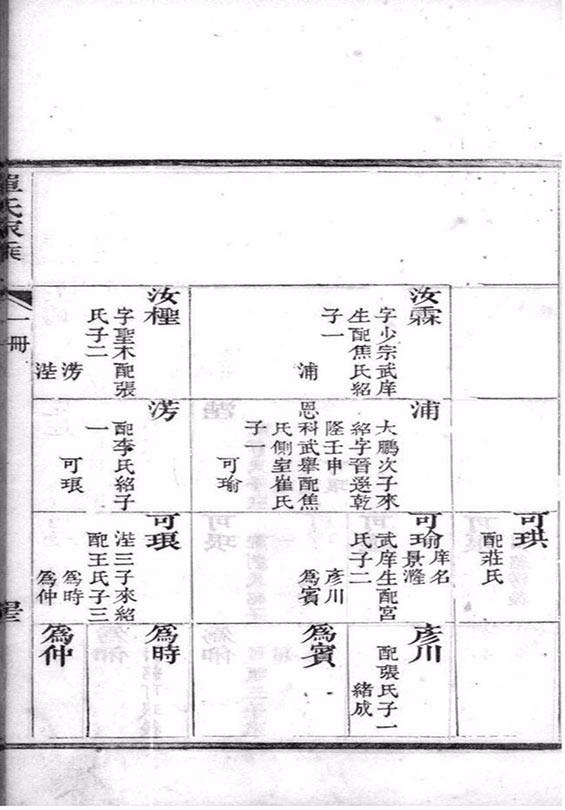 單氏家族
一冊
汝霖
字少宗武庠
生配焦氏紹
子一
浦
汝檉
字聖木配張
氏子二
淓
湼
浦
大鵬次子來
紹字晉選乾
隆壬申
恩科武舉配焦
氏側室崔氏
子一
可瑜
淓
配李氏紹子
一
可琅
可珙
配莊氏
可瑜
庠名
武庠生配宮
氏子二
彥川
爲賓
可琅
湼三子來紹
配王氏子三
爲時
爲仲
彥川
配張氏子一
緒成
爲賓
爲時
爲仲